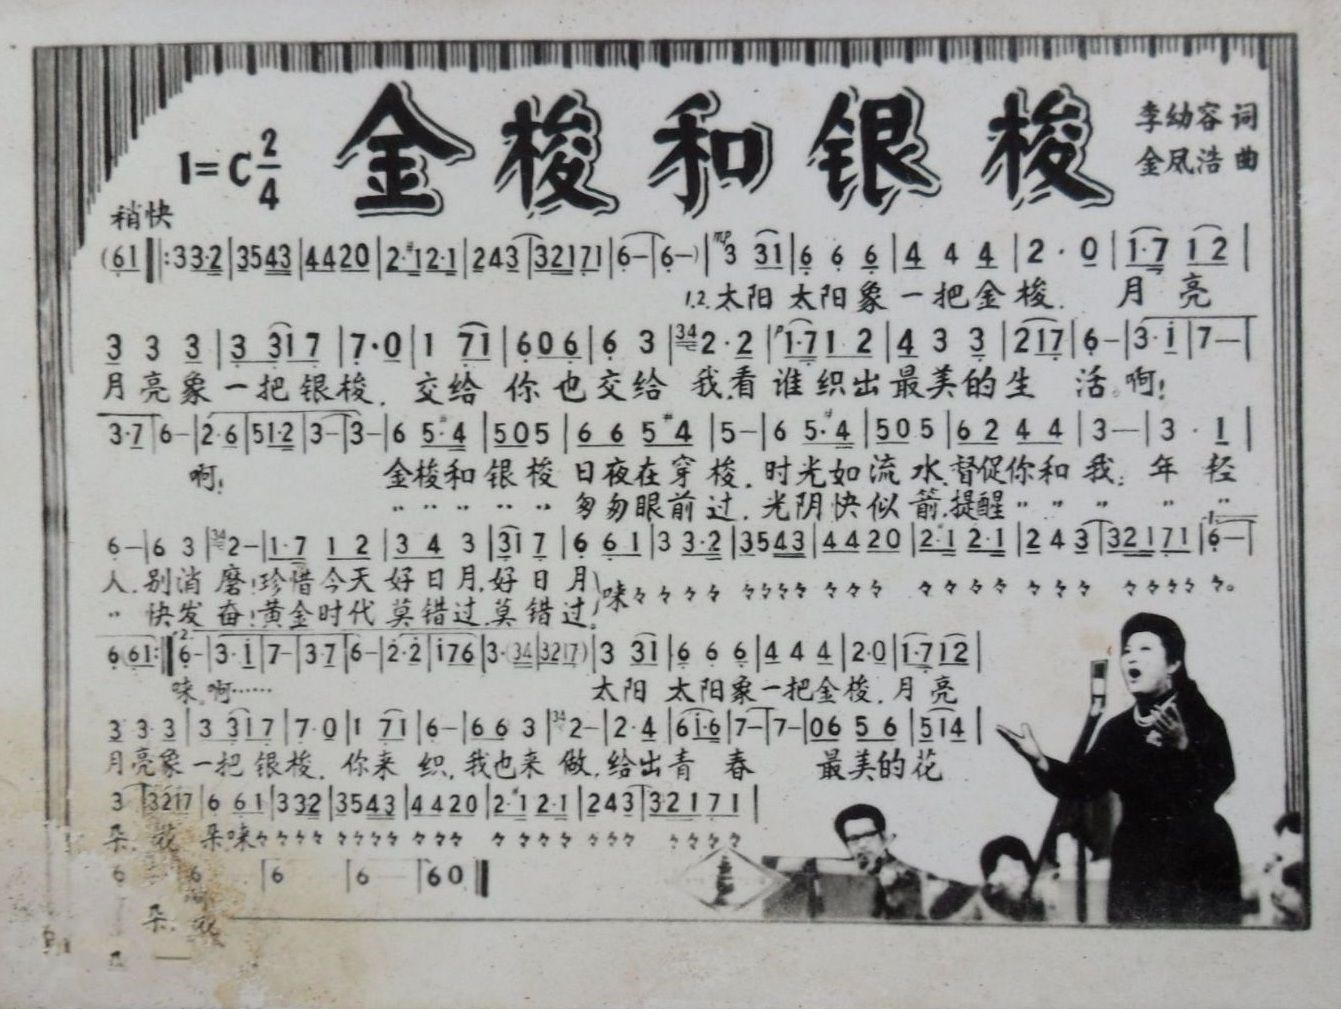 金梭和银梭
1=C 2/4
李幼容 词
金凤浩 曲
稍快
(61‖:333·2|3543|4420|2·#12·1|243|32171|6—|6—)|mp3 31|6 6 6|4 4 4|2·0|1·7 12|
1.2.太阳 太阳象一把金梭. 月亮
3 3 3|3 317|7·0|1 71|606|6 3|342·2|p1·71 2|4 3 3|217|6—|3·i|7—|
月亮象一把银梭. 交给你也交给我.看谁织出最美的生活。啊!
3·7|6—|2·6|51·2|3—|3—|6 5·#4|505|6 6 5#4|5—|6 5·#4|505|62 44|3—|3·1|
啊! 金梭和银梭 日夜在穿梭. 时光如流水.督促你和我; 年轻
〃〃〃〃〃 匆匆眼前过. 光阴快似箭.提醒〃〃〃 〃〃
6—|6 3|342—|1·7 1 2|3 4 3|317|6 61|3 3·2|3543|4420|2·#1 2·1|243|32171|6—|
人.别消磨!珍惜今天好日月.好日月 唻々々々々々々々々々々々々々々々々々々々々々。
〃 快发奋!黄金时代莫错过.莫错过.
6 61:‖2.6—|3·i|7—|37|6—|2·2|i76|3·(34|3217)|3 31|6 6 6|4 4 4|2·0|1·712|
唻 啊…… 太阳 太阳象一把金梭.月亮
3 3·3|3 317|7·0|1 71|6—|66 3|342—|2·4|6i·6|7—|7—|06 56|514|
月亮象一把银梭. 你来织.我也来做.给出青春 最美的花
3 |3217|6 61|332|3543|4420|2·#1 2·1|243|32171|
朵. 朵.唻々々々々々々々々々々々々々々々々々々々々
6 6 |6 |6 —|60‖
朵.